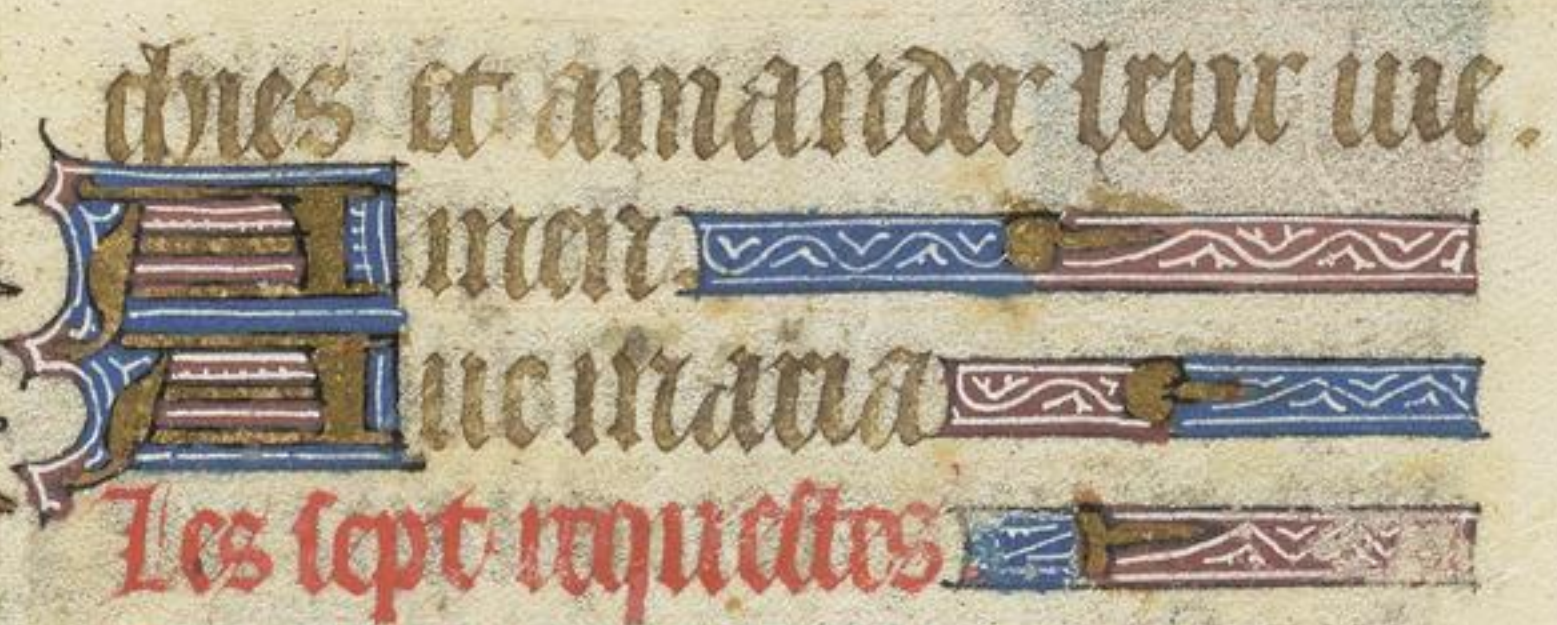 chies et amander leur uie.
Amen.
Aue maria
Les sept requestes